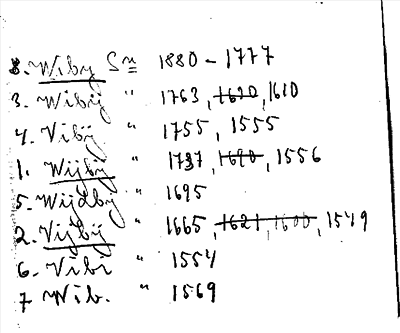 8. Wiby Sn 1880 - 1777
3. Wibÿ " 1763, 1620, 1610
4. Vibÿ " 1755, 1555
1. Wijbÿ " 1737, 1690, 1556
5. Wijdby " 1695
2. Vijbÿ " 1665, 1621, 1600, 1549
6. Vibi " 1554
7 Wib. " 1569